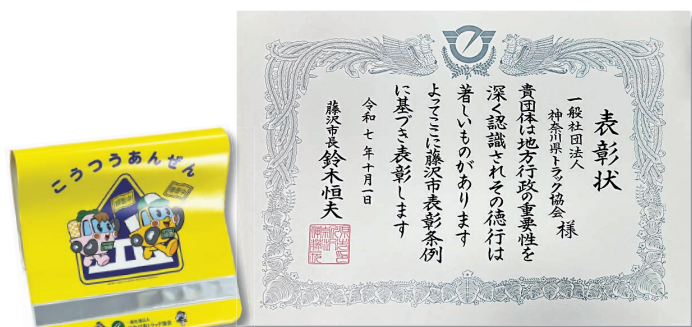 こうつうあんぜん
表彰状
一般社団法人
神奈川県トラック協会 様
貴団体は地方行政の重要性を
深く認識されその徳行は
著しいものがあります
よってここに藤沢市表彰条例
に基づき表彰します
令和七年十月一日
藤沢市長 鈴木恒夫